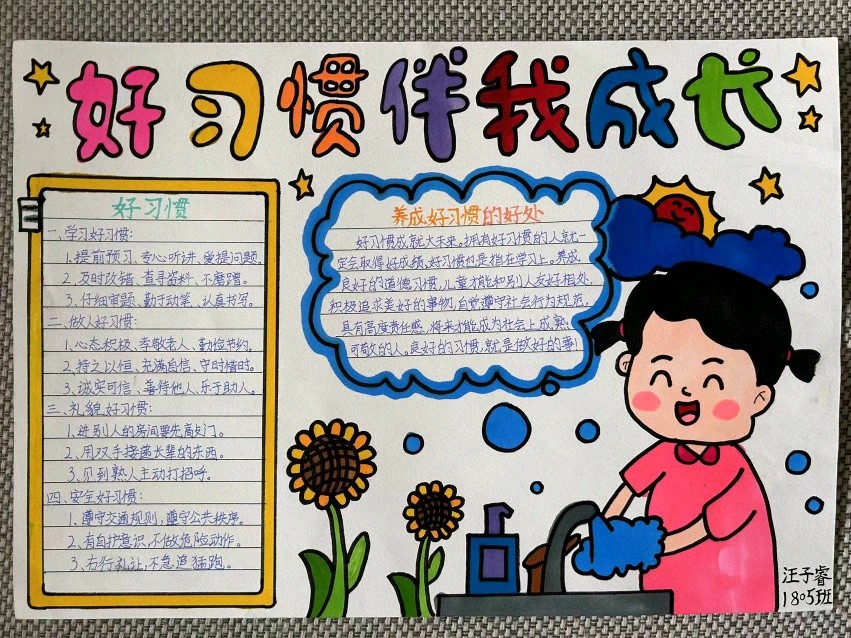 好习惯伴我成长
好习惯
一、学习好习惯:
1.提前预习、专心听讲、爱提问题。
2.及时改错、查寻资料、不磨蹭。
3.仔细审题、勤于动笔、认真书写。
二、做人好习惯:
1.心态积极、孝敬老人、勤俭节约。
2.持之以恒、充满自信、守时惜时。
3.诚实可信、善待他人、乐于助人。
三、礼貌好习惯:
1.进别人的房间要先敲门。
2.用双手接递长辈的东西。
3.见到熟人主动打招呼。
四、安全好习惯:
1.遵守交通规则,遵守公共秩序。
2.有自护意识,不做危险动作。
3.右行礼让,不急追猛跑。
养成好习惯的好处
好习惯成就大未来。拥有好习惯的人就一
定会取得好成绩。好习惯也是指在学习上。养成
良好的道德习惯,儿童才能和别人友好相处,
积极追求美好的事物,自觉遵守社会行为规范,
具有高度责任感,将来才能成为社会上成熟、
可敬的人。良好的习惯,就是做好的事!
汪子睿
1805班